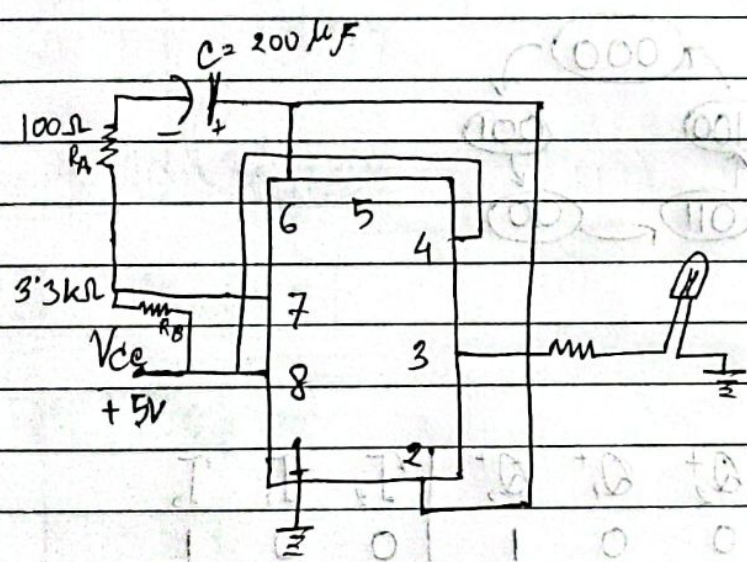 C = 200 μF
− +
100Ω
RA
6 5
4
3.3kΩ
7
RB
Vcc
3
8
+ 5V
1 2